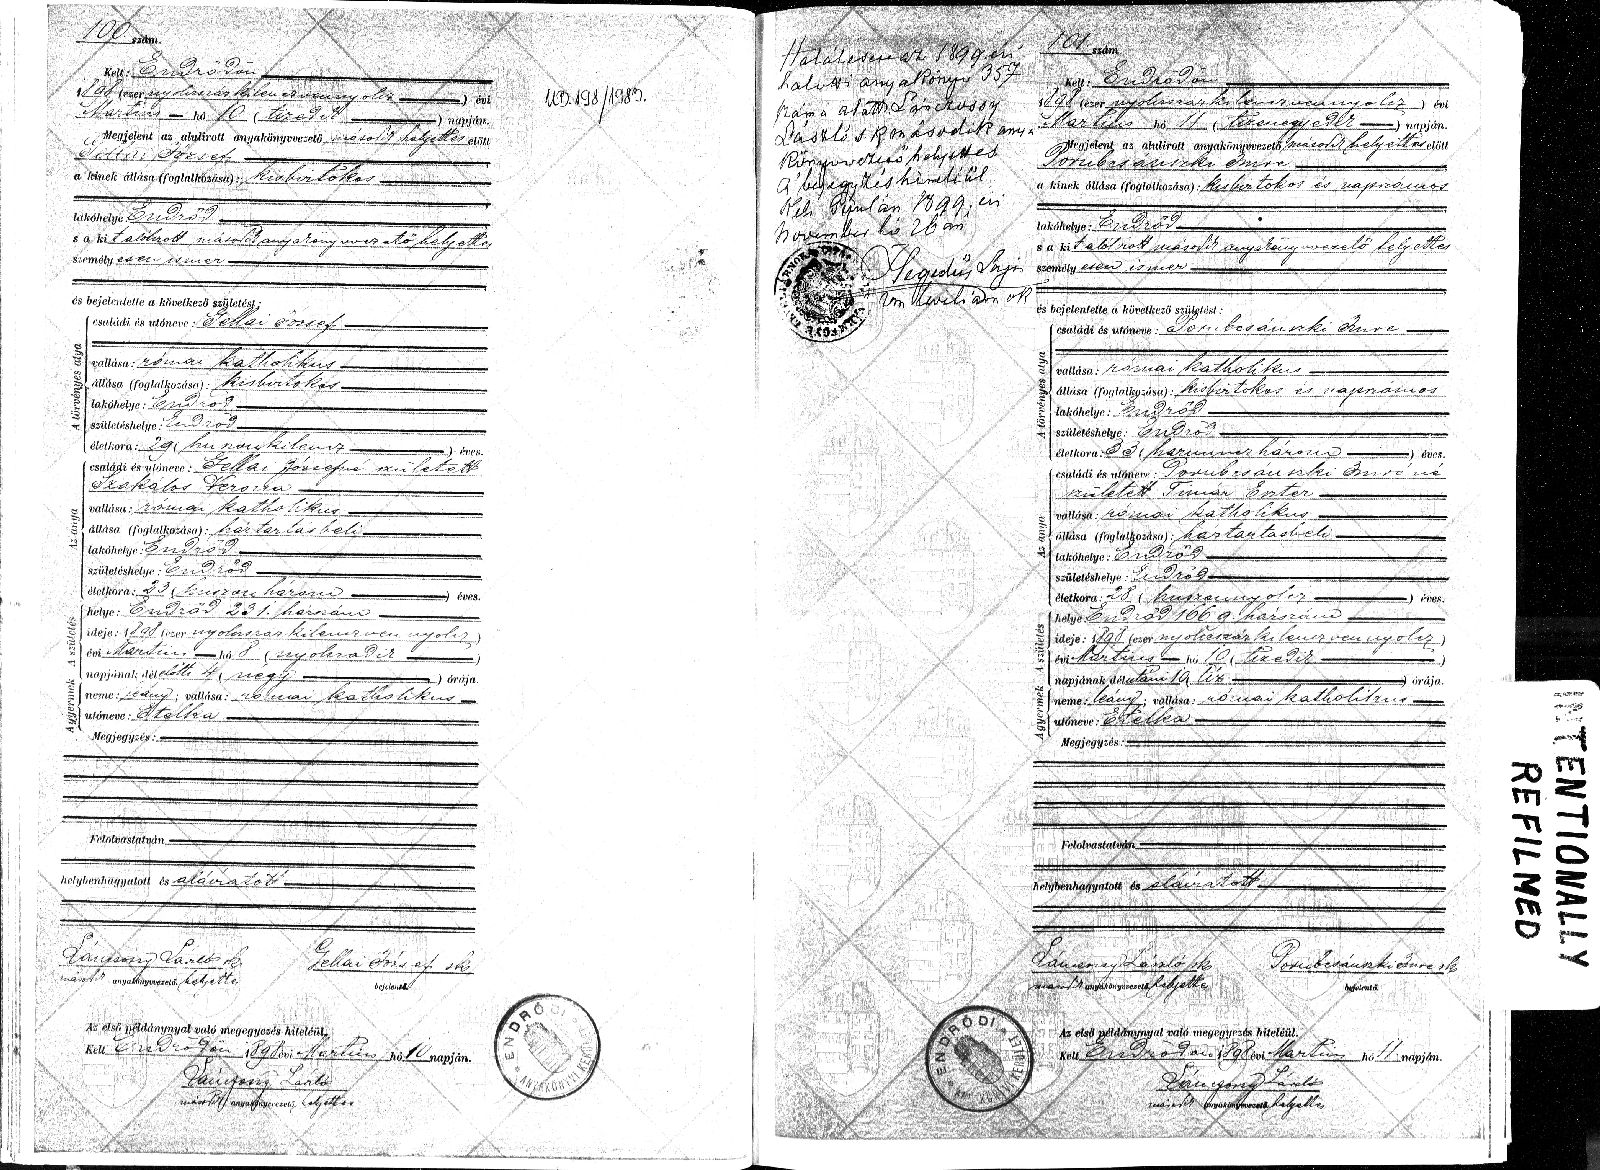 100 szám.
Kelt: Endrődön
1898 (ezer nyolczszázkilenczvennyolcz) évi
Martius hó 10 (tizedik) napján.
Megjelent az alulirott anyakönyvvezető másodk helyettes előtt
Gellai József
a kinek állása (foglalkozása): kisbirtokos
lakóhelye Endrőd
s a kit alulirott másodk anyakönyvvezető helyettes
személyesen ismer
és bejelentette a következő születést:
A törvényes atya
családi és utóneve: Gellai József
vallása: római katholikus
állása (foglalkozása): kisbirtokos
lakóhelye: Endrőd
születéshelye: Endrőd
életkora: 29 (huszonkilencz) éves.
Az anya
családi és utóneve: Gellai Józsefné született
Szakálos Verona
vallása: római katholikus
állása (foglalkozása): háztartásbeli
lakóhelye: Endrőd
születéshelye: Endrőd
életkora: 23 (huszonhárom) éves.
A születés
helye: Endrőd 231. házszám
ideje: 1898 (ezer nyolczszázkilenczvennyolcz)
évi Martius hó 8 (nyolczadik)
napjának délelőtti 4 (négy) órája.
A gyermek
neme: leány; vallása: római katholikus
utóneve: Etelka
Megjegyzés:
Felolvastatván
helybenhagyatott és aláiratott
Lánczossy László sk.
másodk anyakönyvvezető helyettes
Gellai József sk.
bejelentő.
Az első példánynyal való megegyezés hiteléül.
Kelt Endrődön 1898 évi Martius hó 10 napján.
Lánczossy László
másodk anyakönyvvezető helyettes
ENDRŐDI ANYAKÖNYVI KERÜLET
UD. 198/1983.
Halálesete az 1899. évi
halotti anyakönyv 357
szám alatt Lánczossy
László sk második anya-
könyvvezető helyettes
A bejegyzés hiteléül.
Kelt Gyulán 1899. évi
November hó 26 án
Hegedűs
101 szám
Kelt: Endrődön
1898 (ezer nyolczszázkilenczvennyolcz) évi
Martius hó 11 (tizenegyedik) napján.
Megjelent az alulirott anyakönyvvezető másodk helyettes előtt
Porubcsánszki Imre
a kinek állása (foglalkozása): kisbirtokos és napszámos
lakóhelye: Endrőd
s a kit alulirott másodk anyakönyvvezető helyettes
személyesen ismer
és bejelentette a következő születést:
A törvényes atya
családi és utóneve: Porubcsánszki Imre
vallása: római katholikus
állása (foglalkozása): kisbirtokos és napszámos
lakóhelye: Endrőd
születéshelye: Endrőd
életkora: 33 (harminczhárom) éves.
Az anya
családi és utóneve: Porubcsánszki Imréné
született Timár Eszter
vallása: római katholikus
állása (foglalkozása): háztartásbeli
lakóhelye: Endrőd
születéshelye: Endrőd
életkora: 28 (huszonnyolcz) éves.
A születés
helye: Endrőd 166 házszám
ideje: 1898 (ezer nyolczszázkilenczvennyolcz)
évi Martius hó 10 (tizedik)
napjának délutáni 10 (tiz) órája.
A gyermek
neme: leány; vallása: római katholikus
utóneve: Etelka
Megjegyzés:
Felolvastatván
helybenhagyatott és aláiratott
Lánczossy László sk
másodk anyakönyvvezető helyettes
Porubcsánszki Imre sk
bejelentő.
Az első példánynyal való megegyezés hiteléül.
Kelt Endrődön 1898 évi Martius hó 11 napján.
Lánczossy László
másodk anyakönyvvezető helyettes
ENDRŐDI ANYAKÖNYVI KERÜLET
INTENTIONALLY
REFILMED